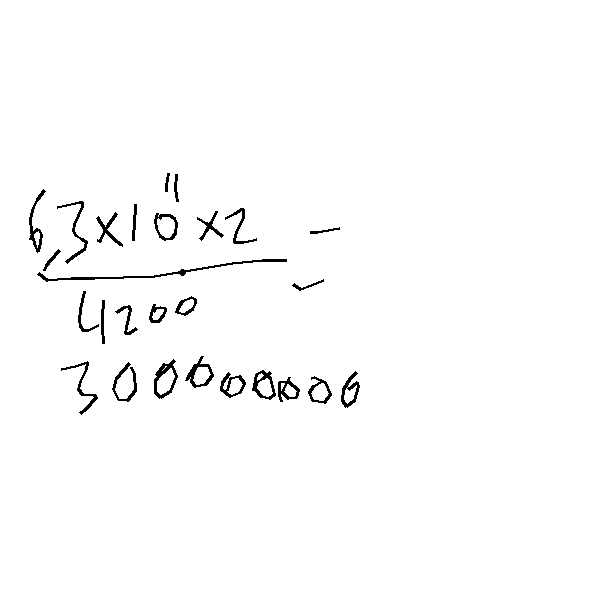 6,3×10¹¹×2 =
4200
300000000